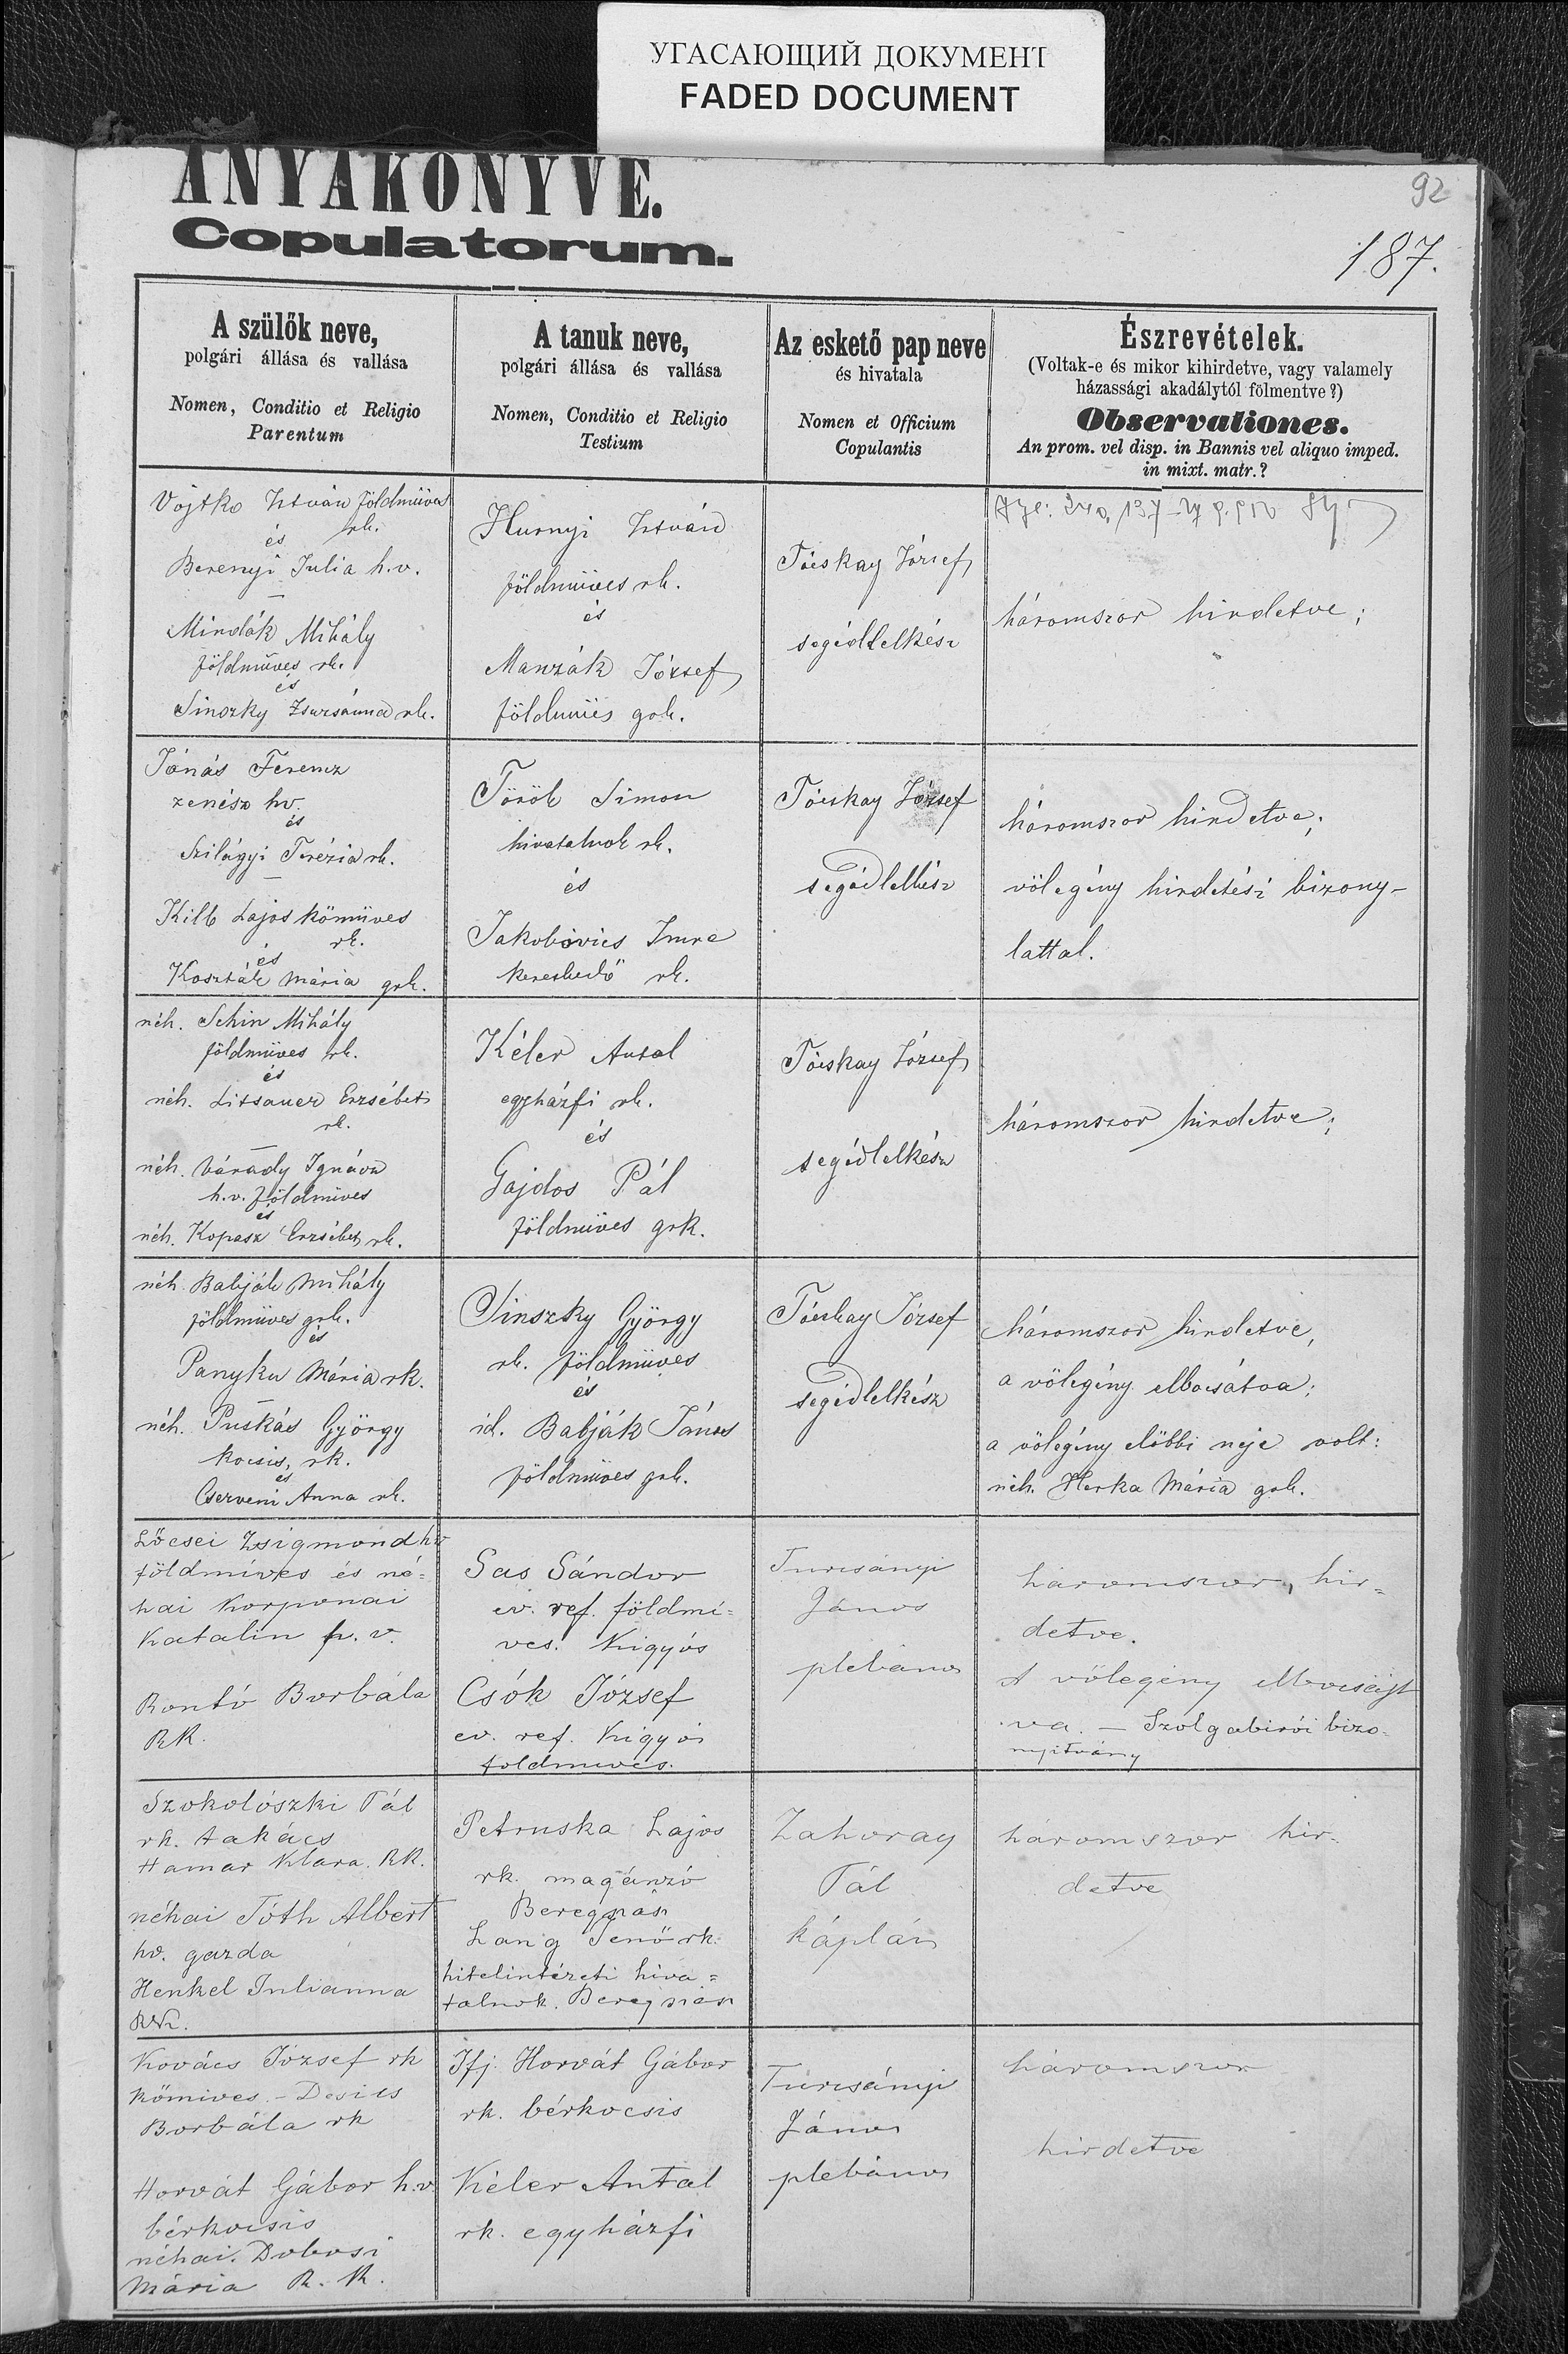 УГАСАЮЩИЙ ДОКУМЕНТ
FADED DOCUMENT
ANYAKÖNYVE.
Copulatorum.
92
187.
A szülők neve,
polgári állása és vallása
Nomen, Conditio et Religio
Parentum
A tanuk neve,
polgári állása és vallása
Nomen, Conditio et Religio
Testium
Az eskető pap neve
és hivatala
Nomen et Officium
Copulantis
Észrevételek.
(Voltak-e és mikor kihirdetve, vagy valamely
házassági akadálytól fölmentve?)
Observationes.
An prom. vel disp. in Bannis vel aliquo imped.
in mixt. matr.?
Vojtko István földmüves
és rk.
Berenyi Julia h.v.
Mindák Mihály
földműves rk.
és
Sinszky Zsuzsánna rk.
Hurnyi István
földmüves rk.
és
Manzák József
földmüves grk.
Tócskay József
segédlelkész
háromszor hirdetve;
Jónás Ferencz
zenész hv.
és
Szilágyi Terézia rk.
Kilb Lajos kömüves
rk.
és
Koszták Mária grk.
Török Simon
hivatalnok rk.
és
Jakobovics Imre
kereskedő rk.
Tócskay József
segédlelkész
háromszor hirdetve;
völegény hirdetési bizony-
lattal.
néh. Schin Mihály
földmüves rk.
és
néh. Litsauer Erzsébet
rk.
néh. Várady Ignácz
h.v. földmüves
és
néh. Kopasz Erzsébet rk.
Kéler Antal
egyházfi rk.
és
Gajdos Pál
földmüves grk.
Tócskay József
segédlelkész
háromszor hirdetve;
néh. Babják Mihály
földmüves grk.
és
Panyku Mária rk.
néh. Puskás György
kocsis, rk.
és
Cserveni Anna rk.
Sinszky György
rk. földmüves
és
id. Babják János
földmüves grk.
Tócskay József
segédlelkész
háromszor hirdetve,
a völegény elbocsátva;
a völegény előbbi neje volt:
néh. Herka Mária grk.
Lőcsei Zsigmond hv
földmíves és né=
hai Korponai
Katalin h. v.
Rontó Borbála
RK.
Sas Sándor
ev. ref. földmí=
ves. Kigyós
Csók József
ev. ref. Kigyósi
földmíves.
Turcsányi
János
plebános
háromszor, hir=
detve.
A völegény elbocsájt
va. — Szolgabirói bizo=
nyitvány
Szokolószki Pál
rk. takács
Hamar Klára. RK.
néhai Tóth Albert
hv. gazda
Henkel Julianna
RK.
Petruska Lajos
rk. magánzó
Beregszász
Lang Jenő rk.
hitelintézeti hiva=
talnok. Beregszász
Zahoray
Pál
káplán
háromszor hir-
detve
Kovács József rk
kőmives - Desics
Borbála rk
Horvát Gábor h.v.
bérkocsis
néhai. Dobosi
Mária R. K.
Ifj. Horvát Gábor
rk. bérkocsis
Kéler Antal
rk. egyházfi
Turcsányi
János
plebános
háromszor
hirdetve